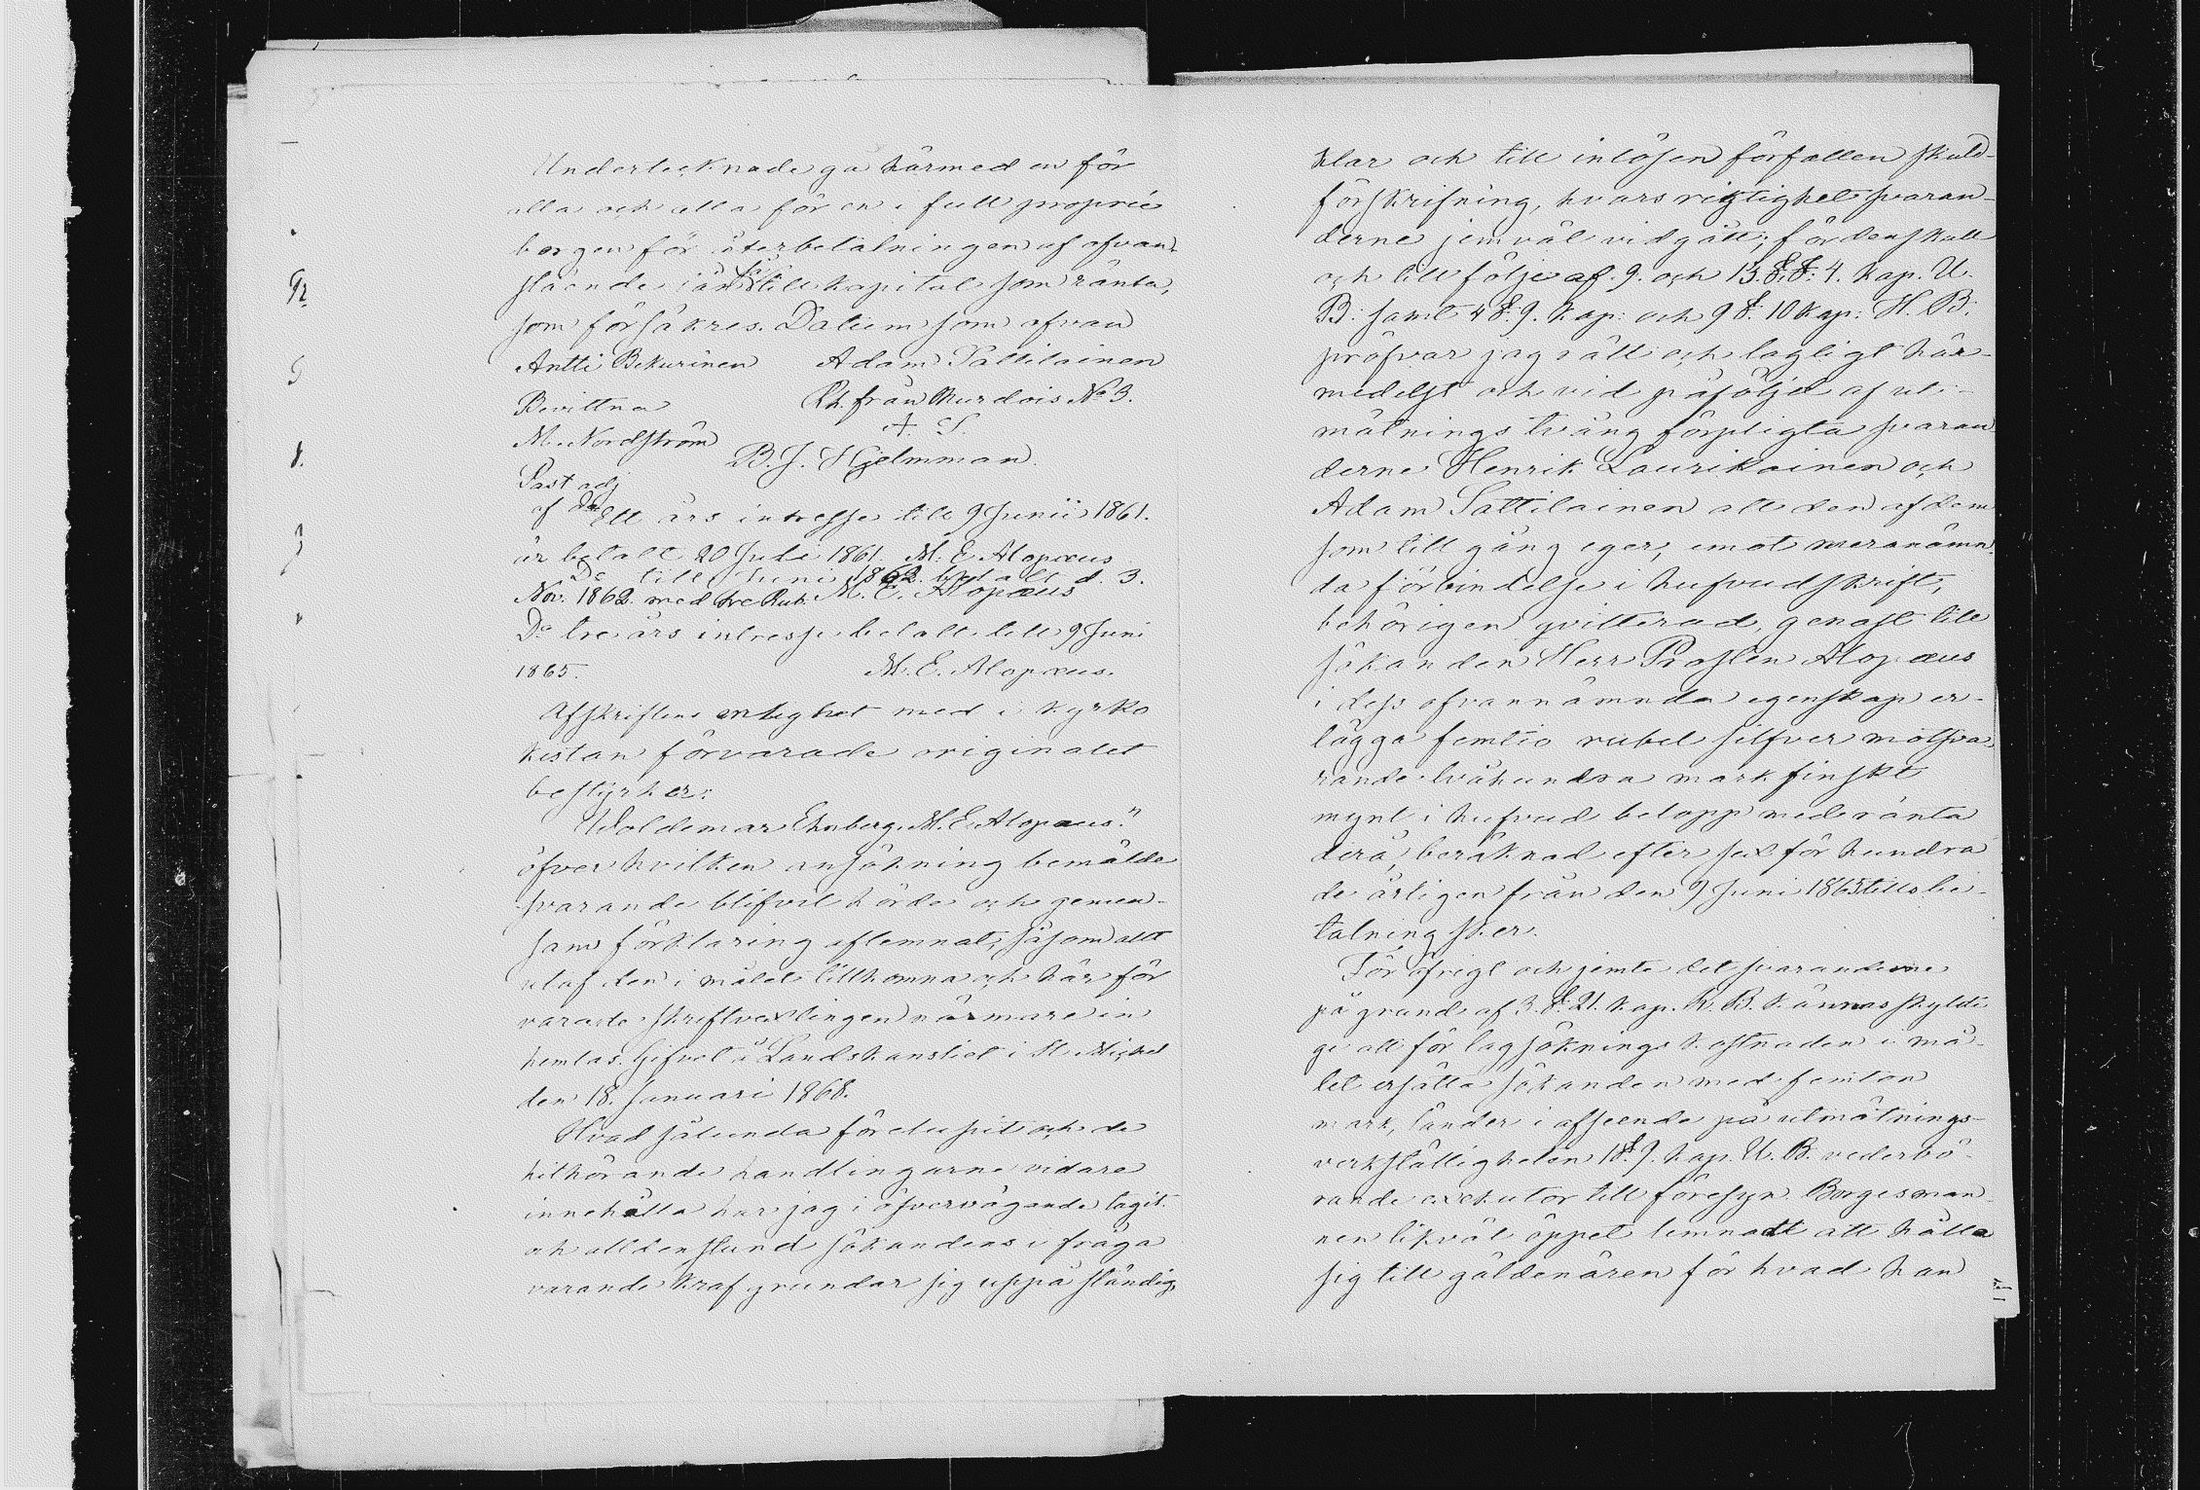 Undertecknade gå härmed en för
alla och alla för en i full proprie
borgen för återbetalningen af ofvan-
stående lån så till kapital som ränta,
som försäkres. Datum som ofvan
Antti Bekurinen Adam Sattilainen
Bevittna Rh. från Kurdois No 3.
M. Nordström A. S.
B. J. Hjelmman.
Past adj
af Do Ett års intresse till 9 Junii 1861.
är betalt 20 Juli 1861. M. E. Alopæus
Do till Juni 1862 betalt d. 3.
Nov. 1862. med tre Rub. M. E. Alopæus
Do tre års intresse betalt till 9 Juni
1865. M. E. Alopæus.
Afskriftens enlighet med i kyrko
kistan förvarade originalet
bestyrker:
Woldemar Ehnberg. M. E. Alopæus."
öfver hvilken ansökning bemälde
svarande blifvit hörde och gemen-
sam förklaring aflemnat; såsom allt
utaf den i målet tillkomna och här för
varade skriftvexlingen närmare in
hemtas. Gifvet å Landskansliet i St Michel
den 18. Januari 1868.
Hvad sålunda förelupit och de
hithörande handlingarne vidare
innehålla har jag i öfvervägande tagit.
och alldenstund sökandens i fråga
varande kraf grundar sig uppå ständig,
klar och till inlösen förfallen skuld-
förskrifning, hvars riktighet svaran-
derne jemväl vidgått; för denskull
och till följe af 9. och 13. §.§. 4. kap. U.
B: samt 4 §. 9. kap: och 9 §. 10 kap: H. B.
pröfvar jag rätt och lagligt här-
medelst och vid påföljd af ut-
mätnings tvång förpligta svaran
derne Henrik Laurikainen och
Adam Sattilainen att den af dem
som till gång eger, emot meranämn-
da förbindelse i hufvudskrift,
behörigen qvitterad, genast till
sökanden Herr Prosten Alopæus
i dess ofvannämnda egenskap er-
lägga femtio rubel silfver motsva-
rande tvåhundra mark finskt
mynt i hufvud belopp med ränta
derå, beräknad efter sex för hundra
de årligen från den 9 Juni 1865 tills be-
talning sker.
För öfrigt och jemte det svaranderne
på grund af 3. §. 21. kap. R. B. kännas skyldi
ge att för lagsökningskostnaden i må-
let ersätta sökanden med femton
mark, länder i afseende på utmätnings-
verkställigheten 1 §. 9. kap. U. B. vederbö-
rande exekutor till föresyn. Borgesman-
nen likväl öppet lemnadt att hålla
sig till gäldenären för hvad han